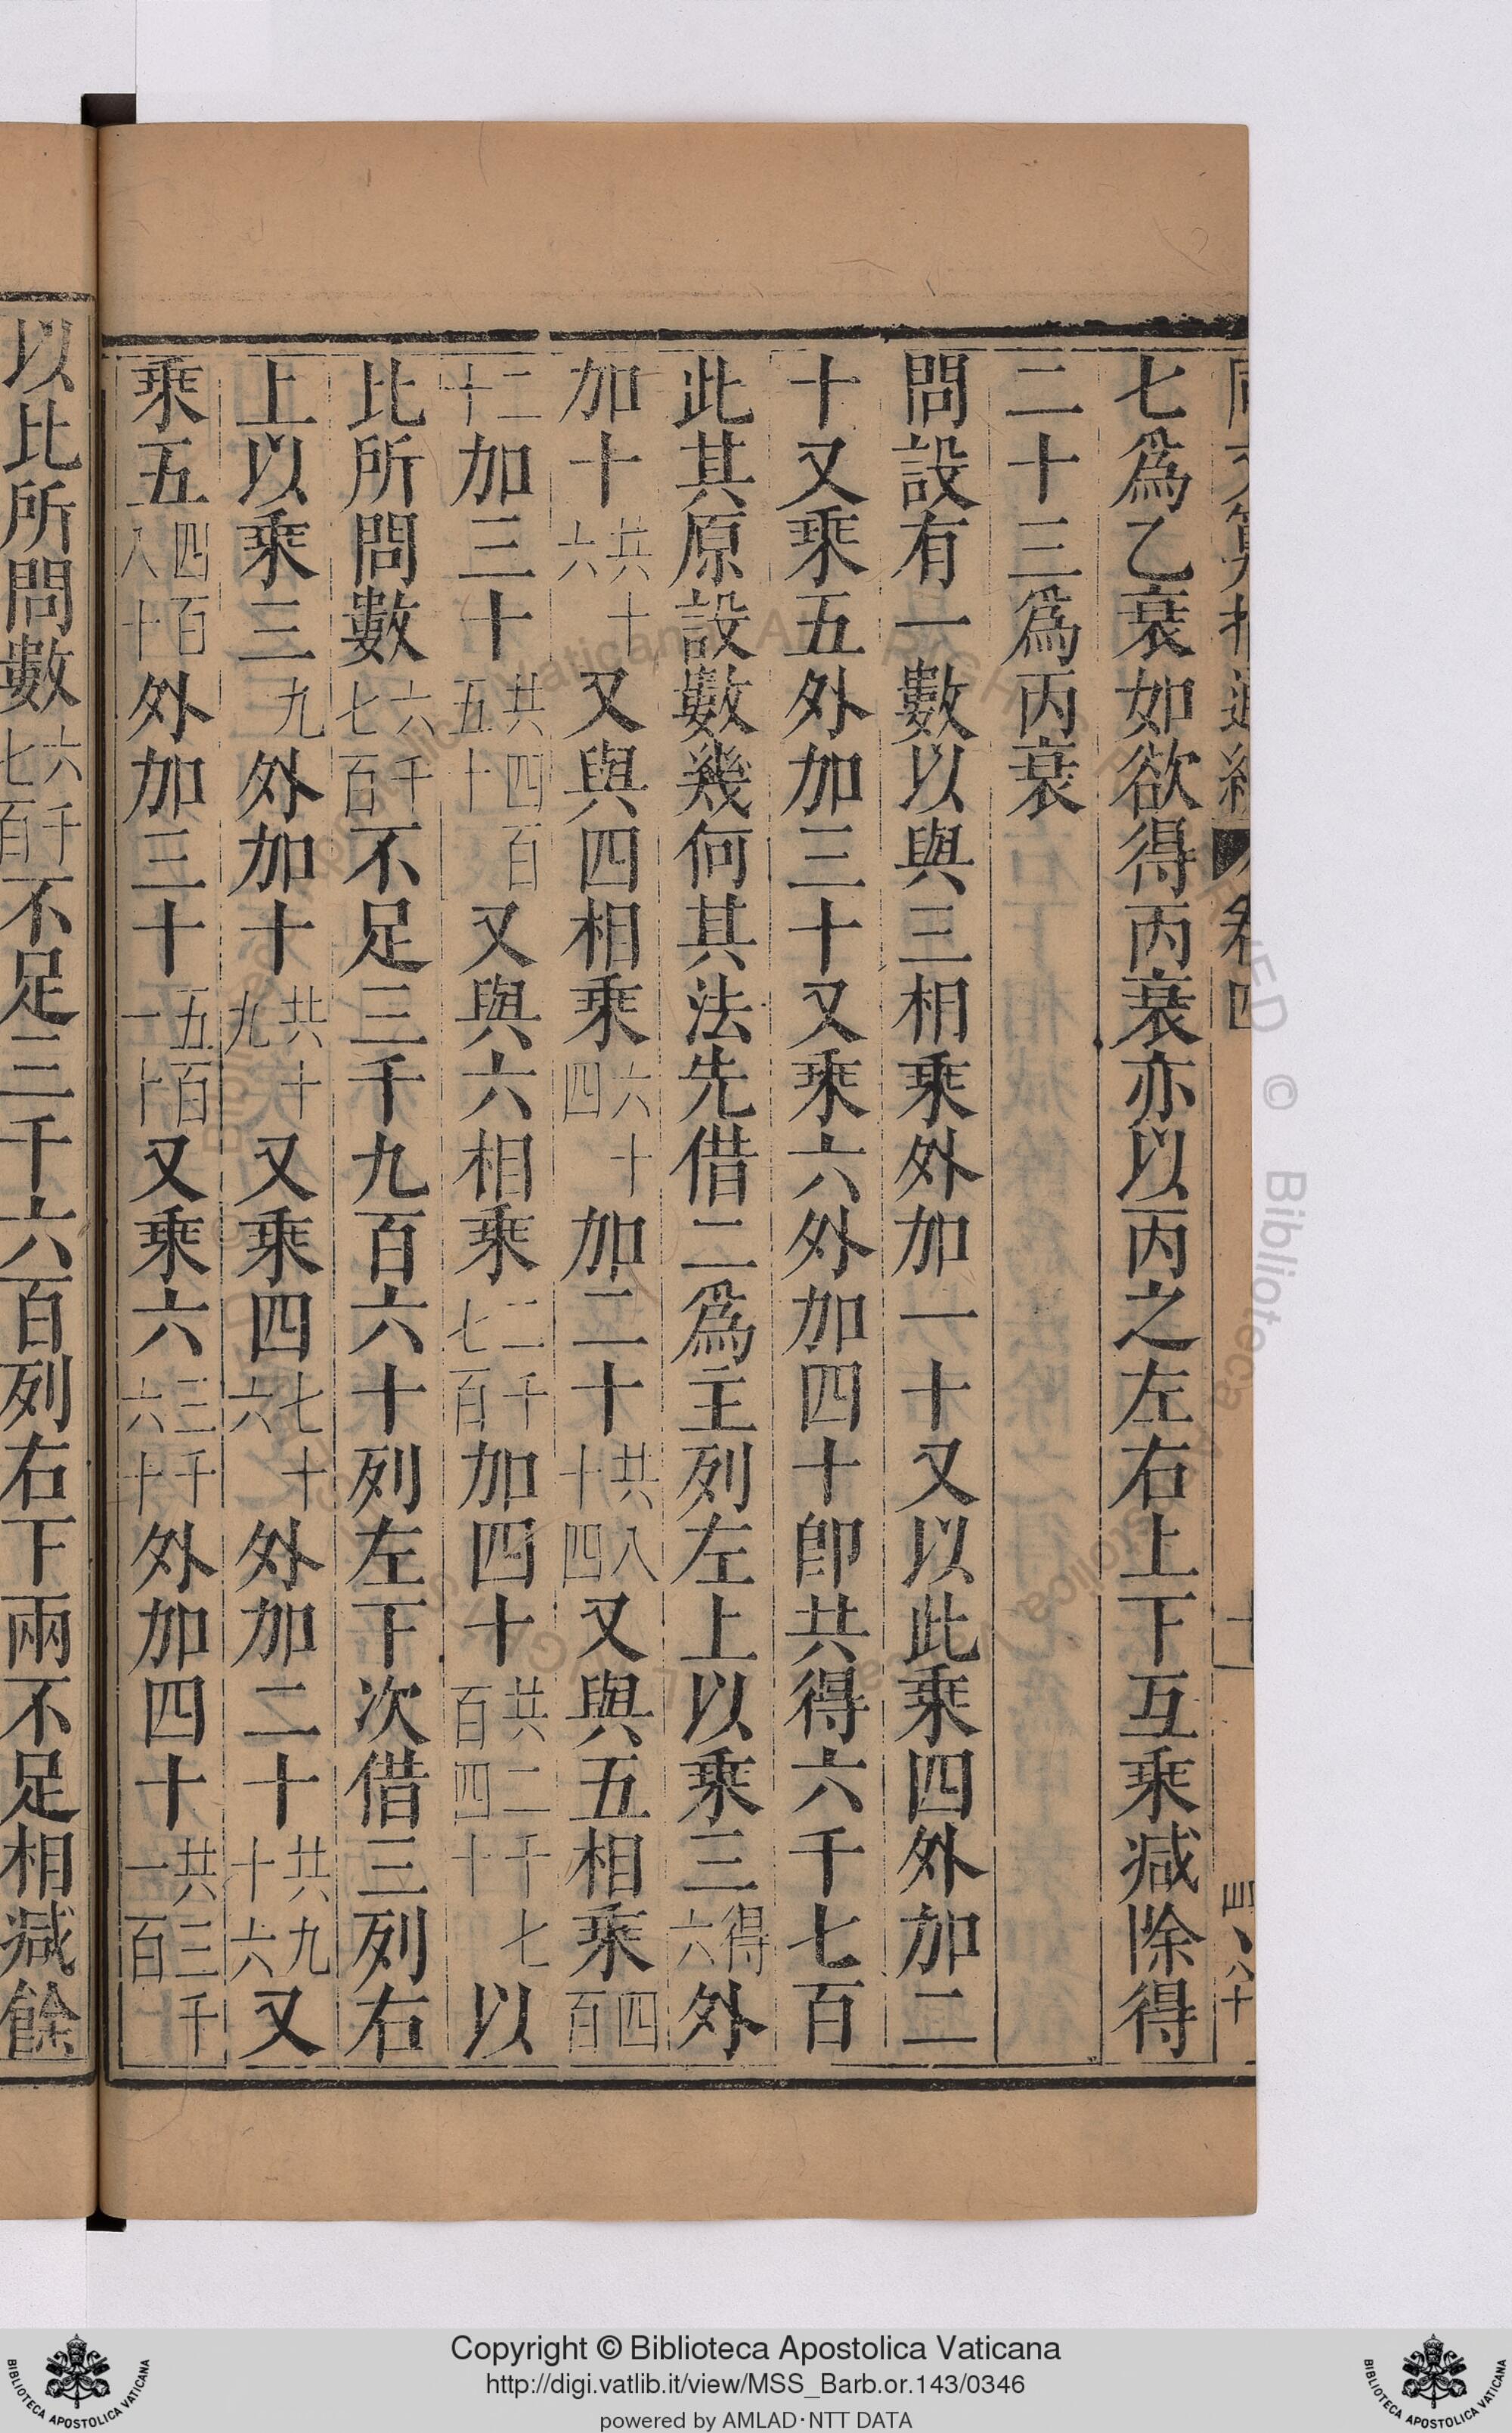 卷四
七爲乙衰如欲得丙衰亦以丙之左右上下互乘減除得
二十三爲丙衰
問設有一數以與三相乘外加一十又以此乘四外加二
十又乘五外加三十又乘六外加四十卽共得六千七百
此其原設數幾何其法先借二爲主列左上以乘三得六外
加十共十六又與四相乘六十四加二十共八十四又與五相乘四百
二十加三十共四百五十又與六相乘二千七百加四十共二千七百四十以
比所問數六千七百不足三千九百六十列左下次借三列右
上以乘三九外加十共十九又乘四七十六外加二十共九十六又
乘五四百八十外加三十五百一十又乘六三千六十外加四十共三千一百
以比所問數六千七百不足三千六百列右下兩不足相減餘
Copyright © Biblioteca Apostolica Vaticana
http://digi.vatlib.it/view/MSS_Barb.or.143/0346
powered by AMLAD·NTT DATA
BIBLIOTECA APOSTOLICA VATICANA
BIBLIOTECA APOSTOLICA VATICANA